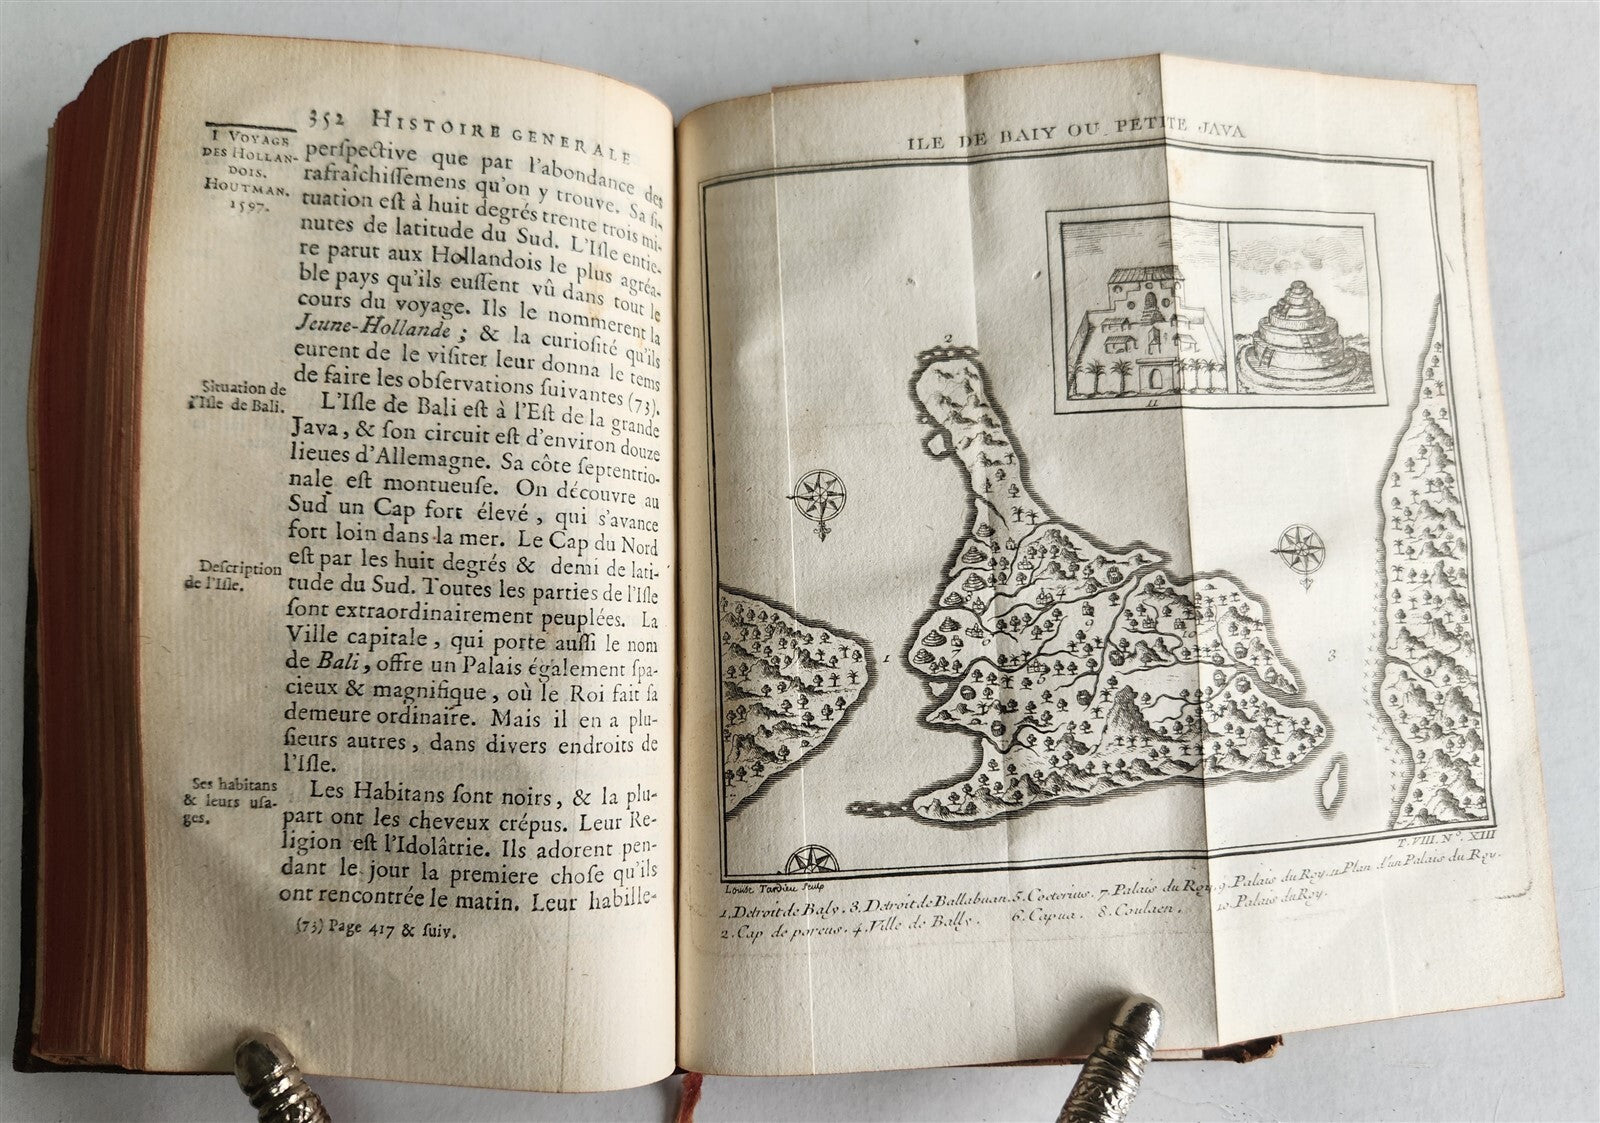 352 HISTOIRE GENERALE
I VOYAGE
DES HOLLAN-
DOIS.
HOUTMAN.
1597.
perſpective que par l'abondance des
rafraîchiſſemens qu'on y trouve. Sa ſi-
tuation eſt à huit degrés trente trois mi-
nutes de latitude du Sud. L'Iſle entie-
re parut aux Hollandois le plus agréa-
ble pays qu'ils euſſent vû dans tout le
cours du voyage. Ils le nommerent la
Jeune-Hollande ; & la curioſité qu'ils
eurent de le viſiter leur donna le tems
de faire les obſervations ſuivantes (73).
Situation de
l'Iſle de Bali.
L'Iſle de Bali eſt à l'Eſt de la grande
Java, & ſon circuit eſt d'environ douze
lieues d'Allemagne. Sa côte ſeptentrio-
nale eſt montueuſe. On découvre au
Sud un Cap fort élevé, qui s'avance
fort loin dans la mer. Le Cap du Nord
eſt par les huit degrés & demi de lati-
tude du Sud. Toutes les parties de l'Iſle
ſont extraordinairement peuplées. La
Ville capitale, qui porte auſſi le nom
de Bali, offre un Palais également ſpa-
cieux & magnifique, où le Roi fait ſa
demeure ordinaire. Mais il en a plu-
ſieurs autres, dans divers endroits de
l'Iſle.
Deſcription
de l'Iſle.
Les Habitans ſont noirs, & la plu-
part ont les cheveux crépus. Leur Re-
ligion eſt l'Idolâtrie. Ils adorent pen-
dant le jour la premiere choſe qu'ils
ont rencontrée le matin. Leur habille-
Ses habitans
& leurs uſa-
ges.
(73) Page 417 & ſuiv.
ILE DE BAIY OU PETITE JAVA
11
2
1
3
4
9
10
7
T. VIII. N°. XIII
Louise Tardieu Sculp
1. Detroit de Baly. 3. Detroit de Ballabuan. 5. Coeterius. 7. Palais du Roy. 9. Palais du Roy. 11. Plan d'un Palais du Roy.
2. Cap de porcus. 4. Ville de Bally. 6. Capua. 8. Coulaen. 10. Palais du Roy.